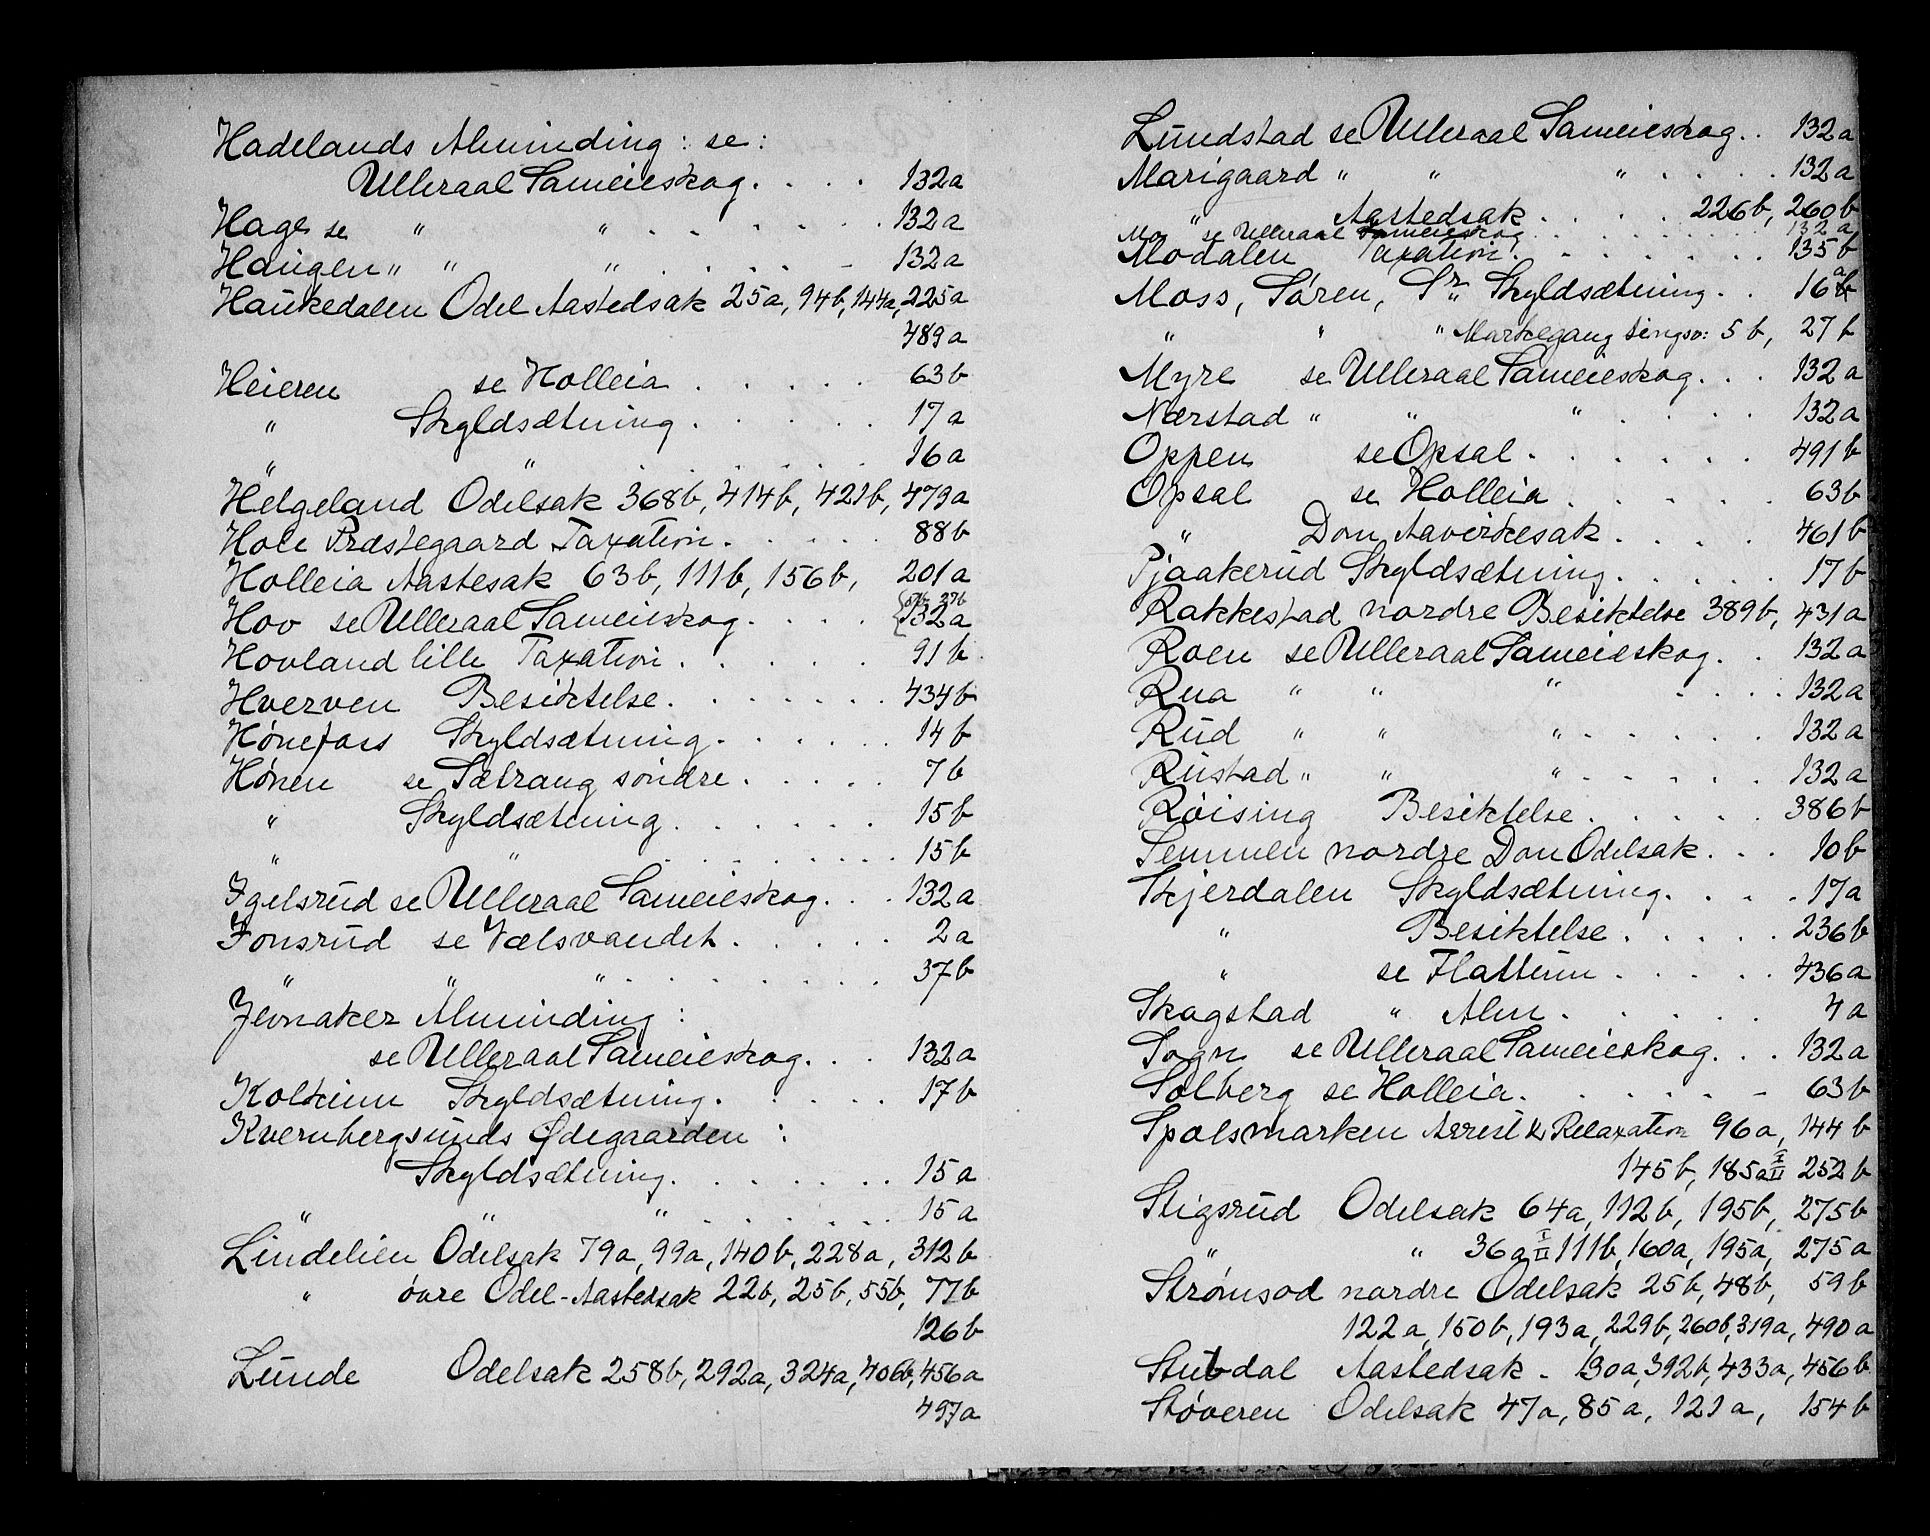 Hadelands Alminding: se:
Ulleraal Sameieskog. . . . 132a
Hage se " " . . . . . . 132a
Haugen " " " . . . . - 132a
Haukedalen Odel Aastedsak 25a, 94b, 144a, 225a
489a
Heieren se Holleia . . . . . 63b
" Skyldsætning . . . . . 17a
" " . . . . . 16a
Helgeland Odelsak 368b, 414b, 421b, 479a
Hole Præstegaard Taxation . . . . . 88b
Holleia Aastesak 63b, 111b, 156b, 201a
37b
Hov se Ulleraal Sameieskog. . . . 132a
Hovland lille Taxation . . . . . 91b
Hverven Besiktelse. . . . . . 434b
Hønefoss Skyldsætning. . . . . 14b
Hønen se Sætrang søndre . . . . 7b
" Skyldsætning . . . . . 15b
" " . . . . . . 15b
Igelsrud se Ulleraal Sameieskog. . . 132a
Jonsrud se Vælsvandet . . . . . 2a
" " " . . . . . . 37b
Jevnaker Alminding:
se Ulleraal Sameieskog. . . 132a
Kolkinn Skyldsætning. . . . . 17b
Kvernbergsunds Ødegaarden :
Skyldsætning. . . . . . 15a
" " " . . . . . . 15a
Lindelien Odelsak 79a, 99a, 140b, 228a, 312b
" øvre Odel-Aastedsak 22b, 25b, 55b, 77b
126b
Lunde Odelsak 258b, 292a, 324a, 406b, 456a
497a
Lundstad se Ulleraal Sameieskog. . 132a
Marigaard " " " . . . . 132a
" Aastedsak . . . . 226b, 260b
Mo se Ulleraal Sameieskog . . . . . 132a
Modalen Taxation. . . . . . 135b
Moss, Søren, Sr. Skyldsætning. . 16a
" " " Markegang tingsv: 5b, 27b
Myre se Ulleraal Sameieskog. . . 132a
Nærstad " " " . . . . 132a
Oppen se Opsal . . . . . . 491b
Opsal se Holleia . . . . . 63b
" Dom Aavirkesak . . . . 461b
Pjaakerud Skyldsætning. . . . . 17b
Rakkestad nordre Besiktelse 389b, 431a
Roen se Ulleraal Sameieskog. . 132a
Rua " " " . . . . 132a
Rud " " " . . . . . 132a
Rustad " " " . . . . . 132a
Røising Besiktelse . . . . . 386b
Semmen nordre Dom Odelsak . . . 10b
Skjerdalen Skyldsætning. . . . 17a
" Besiktelse . . . . . 236b
" se Flattum . . . . . 436a
Skagstad " Alm . . . . . . 4a
Sogn se Ulleraal Sameieskog. . . 132a
Solberg se Holleia. . . . . . - 63b
Spålsmarken Arrest & Relaxation 96a, 144b
145b, 185a I II 252b
Stigsrud Odelsak 64a, 112b, 195b, 275b
" " 36a I II 111b, 160a, 195a, 275a
Strømsod nordre Odelsak 25b, 48b, 59b
122a, 150b, 193a, 229b, 260b, 319a, 490a
Stubdal Aastedsak - 130a, 392b, 433a, 456b
Støveren Odelsak 47a, 85a, 121a, 154b